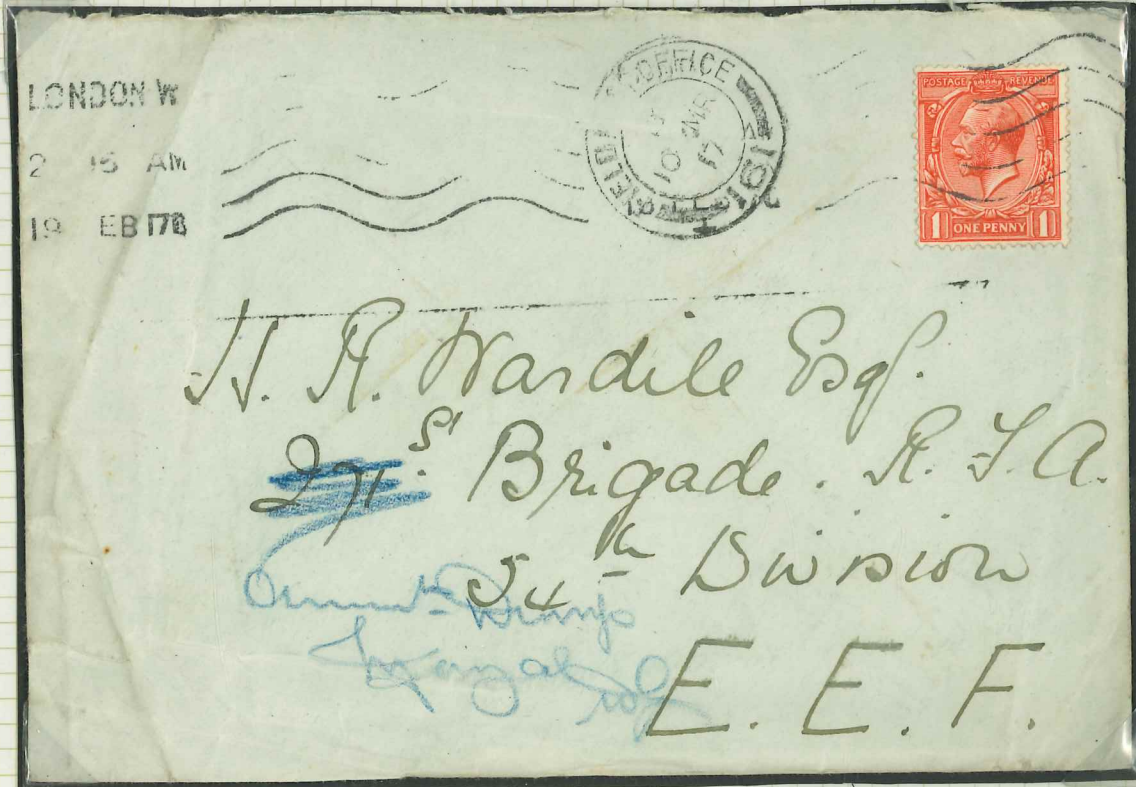 LONDON W
2 15 AM
19 EB 17B
OFFICE
10 MR
17
POSTAGE REVENUE
1 ONE PENNY 1
H. R. Wardile Esq.
271st Brigade. R. F. A.
54th Division
E. E. F.